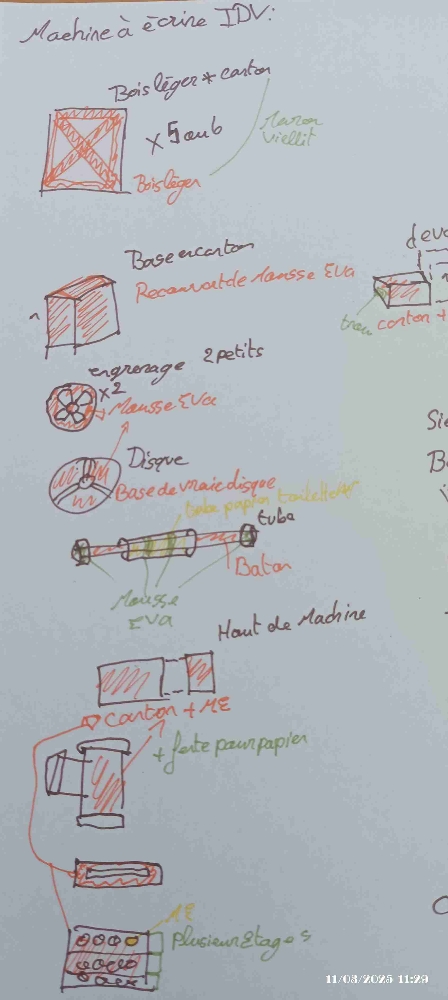 Machine à écrire IDV:
Bois léger + carton
x 5 aub
Maron
viellit
Bois léger
Base en carton
Recouvert de Mousse EVa
deva
trou
carton +
engrenage 2 petits
x2
Mousse EVa
Disque
Base de vraie disque
tube papier toilette
tube
Baton
Mousse
EVA
Haut de Machine
carton + ME
+ fente pour papier
ME
Plusieur Etages
Sie
B
11/03/2025 11:29